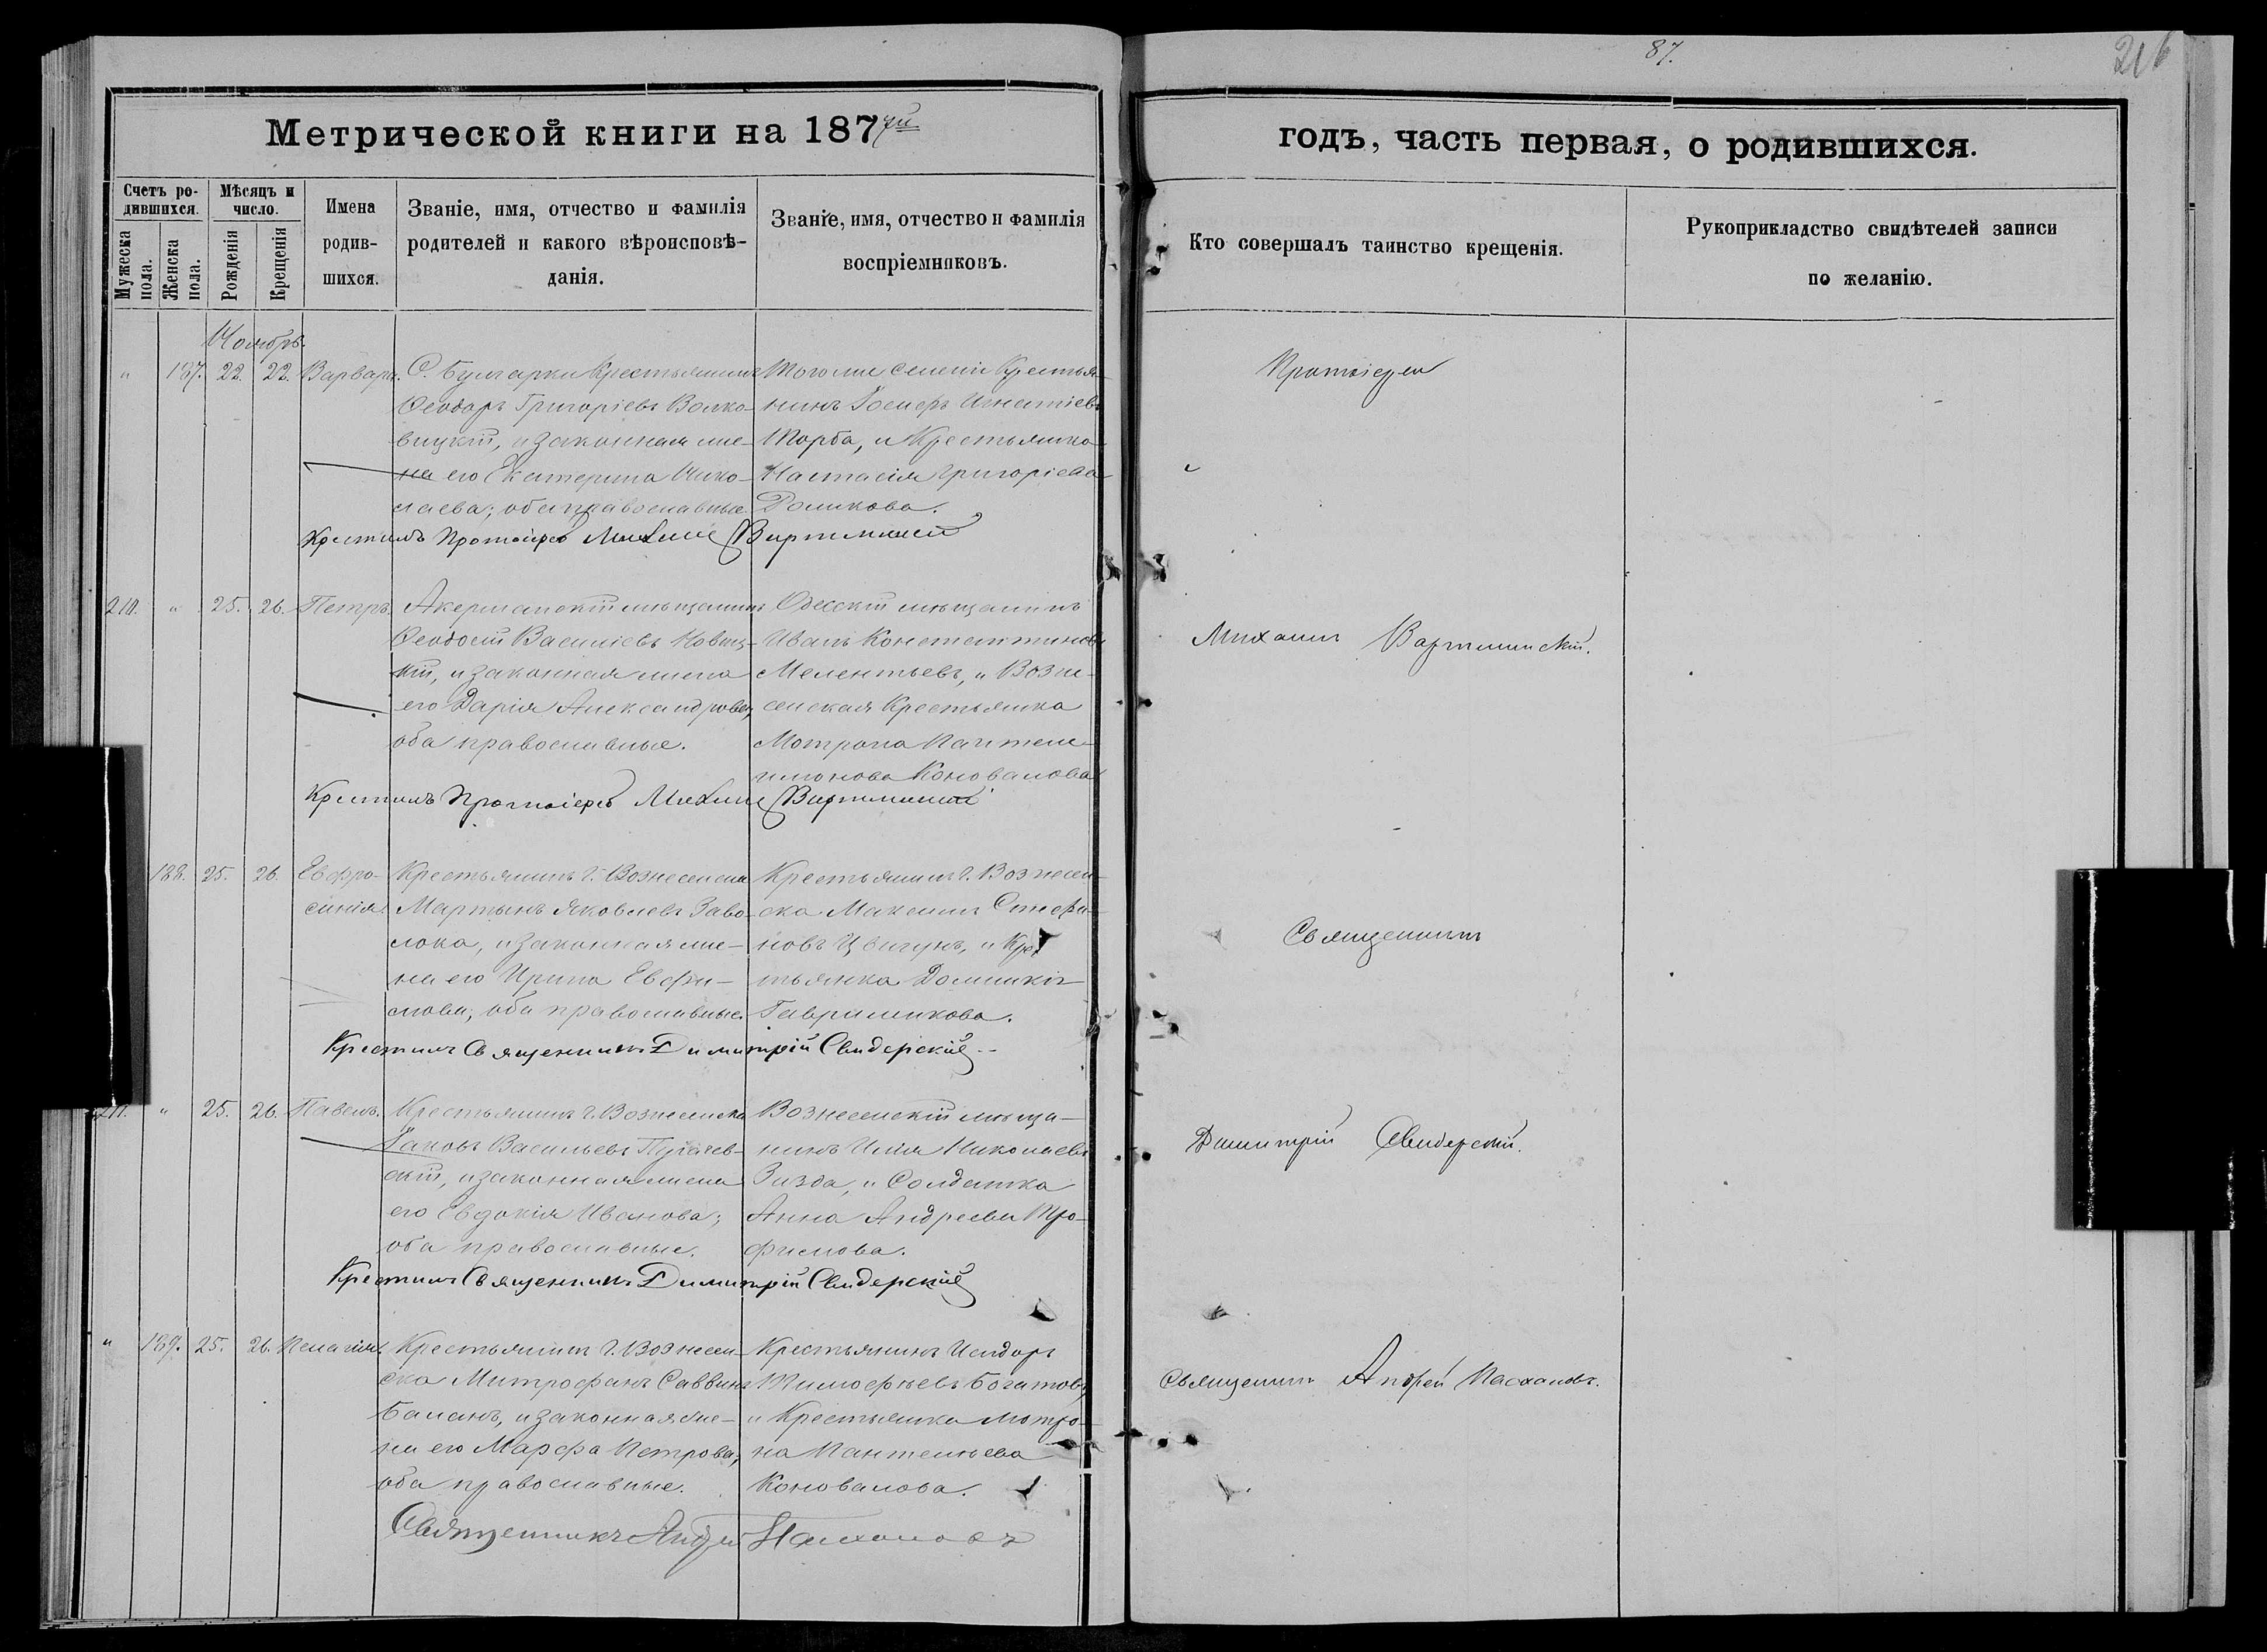 87.
216
Метрической книги на 1877й
годъ, часть первая, о родившихся.
Счетъ родившихся.
Мужеска пола.
Женска пола.
Мѣсяцъ и число.
Рожденія
Крещенія
Имена родившихся.
Званіе, имя, отчество и фамилія
родителей и какого вѣроисповѣ-
данія.
Званіе, имя, отчество и фамилія
воспріемниковъ.
Кто совершалъ таинство крещенія.
Рукоприкладство свидѣтелей записи
по желанію.
Ноябрь.
" 187. 22. 22. Варвара.
С. Булгарки Крестьянинъ
Ѳеодоръ Григоріевъ Волко-
вицкій, и законная же-
на его Екатерина Нико-
лаева; оба православные
Того же селенія Крестья-
нинъ Іосифъ Игнатіевъ
Торба, и Крестьянка
Настасія Григоріева
Крестилъ Протоіерей Михаилъ Вартминскій
Протоіерей
210. " 25. 26. Петръ.
Акерманскій мѣщанинъ
Ѳеодосій Василіевъ Новиц-
кій, и законная жена
его Дарія Александрова,
оба православные.
Одесскій мѣщанинъ
Иванъ Константиновъ
Мелентьевъ, и Возне-
сенская Крестьянка
Мотрона Пантеле-
имонова Коновалова
Крестилъ Протоіерей Михаилъ Вартминскій
Михаилъ Вартминскій.
188. 25. 26. Евфро-
синія.
Крестьянинъ г. Вознесенска
Мартынъ Яковлевъ Заво-
лока, и законная же-
на его Ирина Евфи-
мова; оба православные.
Крестьянинъ г. Вознесен-
ска Максимъ Стефа-
новъ Цвигунъ, и Крес
тьянка Домникія
Гаврикова.
Крестилъ Священникъ Димитрій Свидерскій
Священникъ
211. " 25. 26. Павелъ.
Крестьянинъ г. Вознесенска
Іаковъ Васильевъ Пугачев-
скій, и законная жена
его Евдокія Иванова;
оба православные.
Вознесенскій мѣща-
нинъ Илія Николаевъ
Зизда, и Солдатка
Анна Андреева Тро-
фимова.
Крестилъ Священникъ Димитрій Свидерскій
Димитрій Свидерскій.
" 189. 25. 26. Пелагія.
Крестьянинъ г. Вознесен-
ска Митрофанъ Саввинъ
Баланъ, и законная же-
на его Марфа Петрова,
оба православные.
Крестьянинъ Исидоръ
Тимофѣевъ Богатовъ,
и Крестьянка Мотро-
на Пантелѣева
Коновалова.
Священникъ Андрей Пасхаловъ
Священникъ Андрей Пасхаловъ.